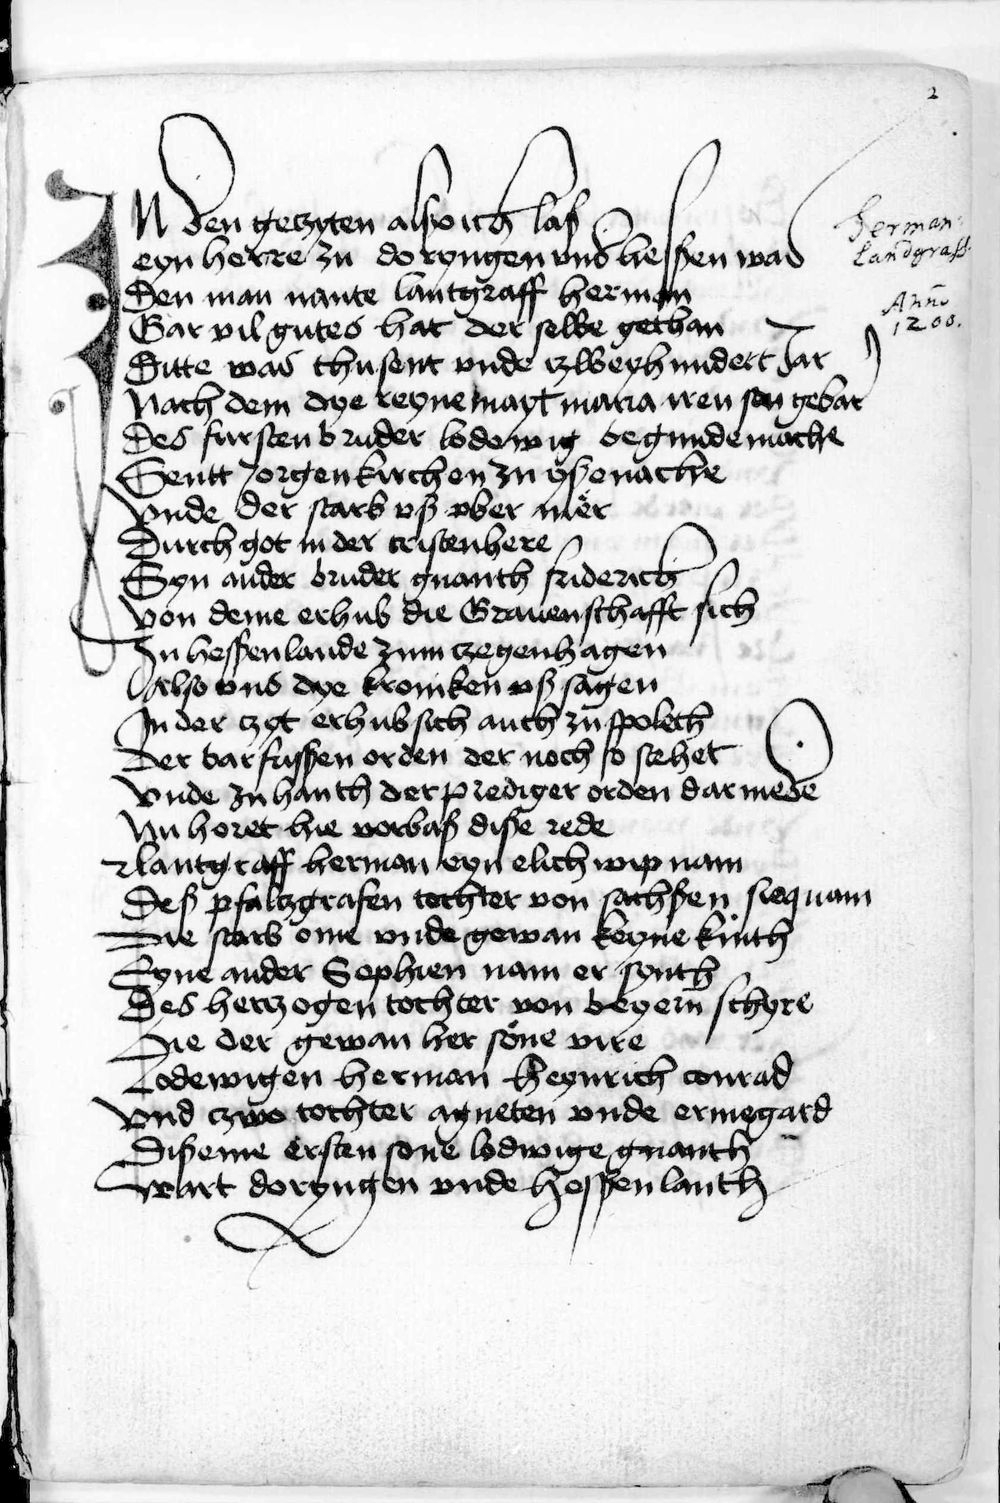 2
IN den getzyten alßo ich laß
eyn herre zu doryngen vnd heßßen was
Den man nante lantgraff herman
Gar vil gutes hat der selbe gethan
Ditte was thusent vnde tzweyhundert Jar
Nach dem dye reyne mayt maria iren son gebar
Des fursten bruder lodewig begunde mache
Sentt Jorgen kirchen zu ysenache
Vnde der starb vß vber mer
Durch got in der cristenhere
Syn ander bruder gnanth friderich
Von deme erhub die Grauenschafft sich
In heßßenlande zum czegenhagen
Also vns dye kroniken vß sagen
In der tzyt erhub sich auch zu spolech
Der barfussen orden der noch so stehet
Vnde zu hanth der prediger orden dar mede
Nu horet hie vorbaß diße rede
lantgraff herman eyn elich wip nam
Deß pfaltzgrafen tochter von sachßen sie quam
Die starb ome vnde gewan keyne kinth
Eyne ander Sophien nam er synth
Des hertzogen tochter von beyern schyre
Die der gewan her söne vire
Lodewigen herman heynrich conrad
Vnd czwo tochter agneten vnde ermegard
Dißeme ersten sone lodwige gnanth
wart doryngen vnde heßßen lanth
Herman:
Landgraff.
Anno
1200.